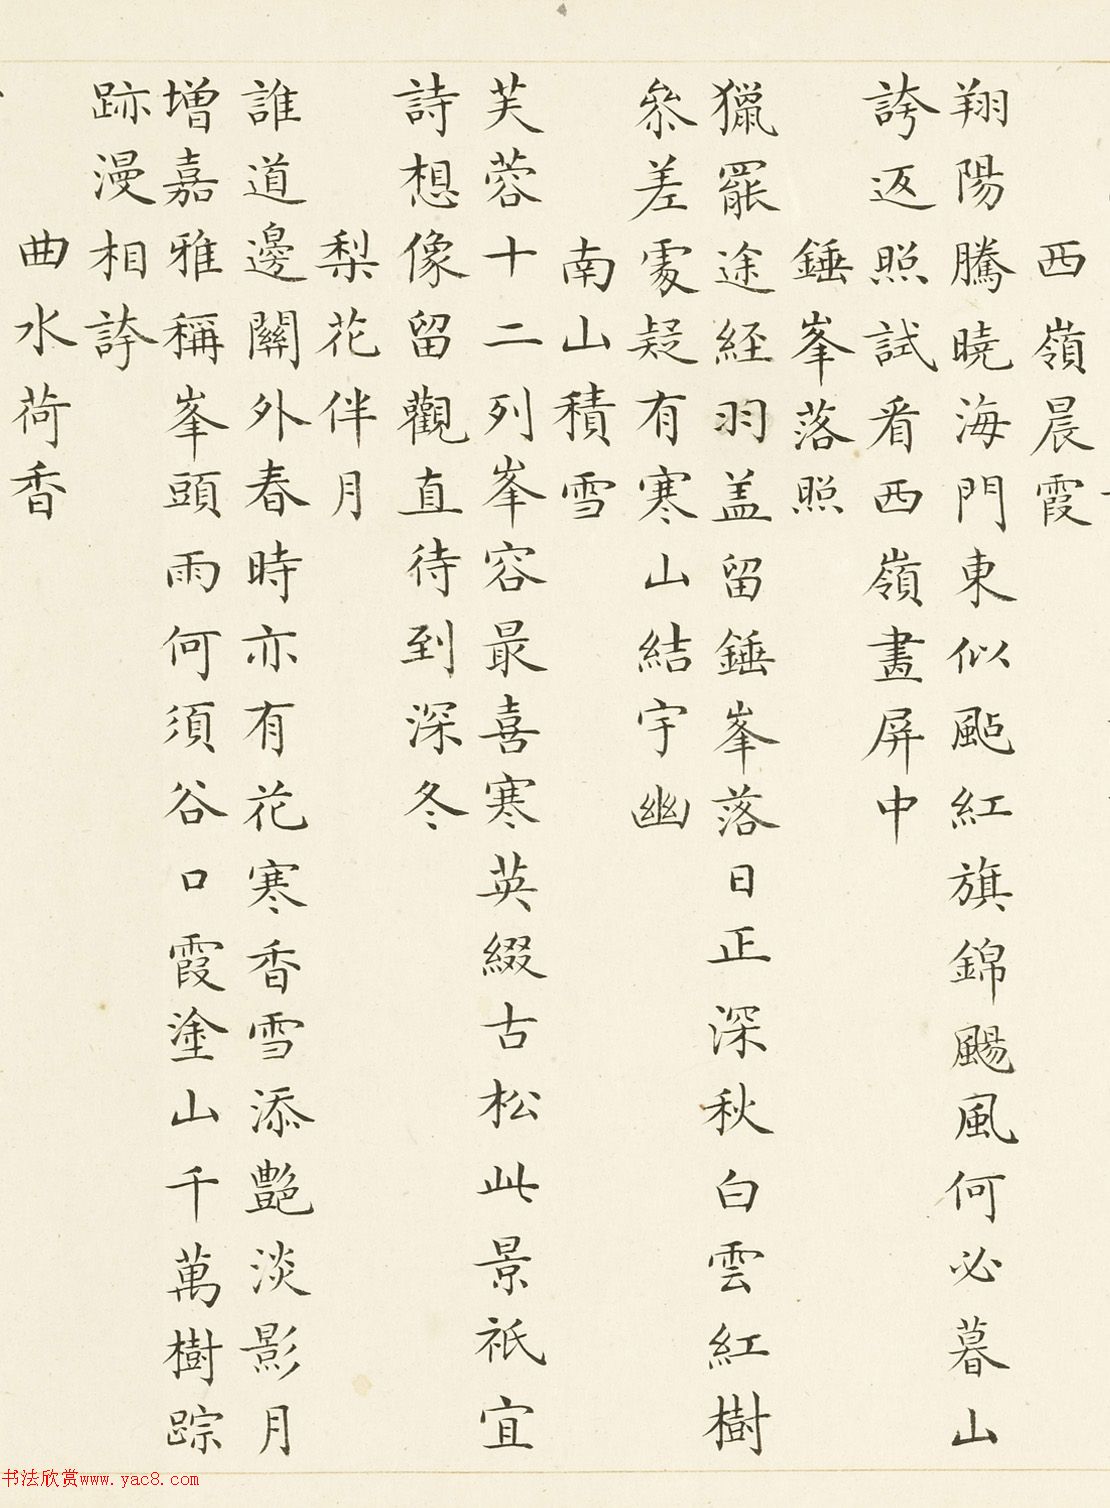 西嶺晨霞
翔陽騰曉海門東似颭紅旗錦颺風何必暮山
誇返照試看西嶺畫屏中
錘峯落照
獵罷途經羽盖留錘峯落日正深秋白雲紅樹
叅差處疑有寒山結宇幽
南山積雪
芙蓉十二列峯容最喜寒英綴古松此景祇宜
詩想像留觀直待到深冬
梨花伴月
誰道邊關外春時亦有花寒香雪添艷淡影月
增嘉雅稱峯頭雨何須谷口霞塗山千萬樹踪
跡漫相誇
曲水荷香
书法欣赏www.yac8.com